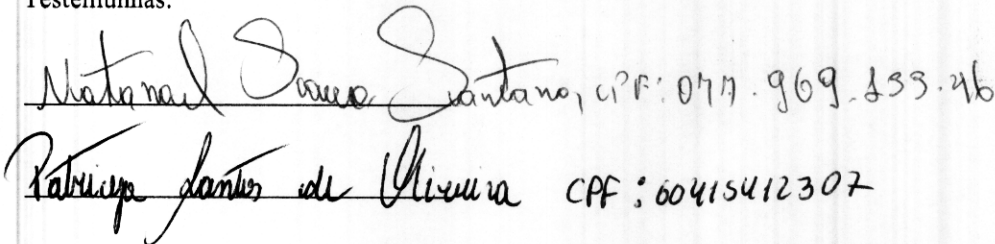 Testemunhas:
Natanael Santana, CPF: 077.969.133-46
Patricya Santos de Oliveira CPF: 60415412307